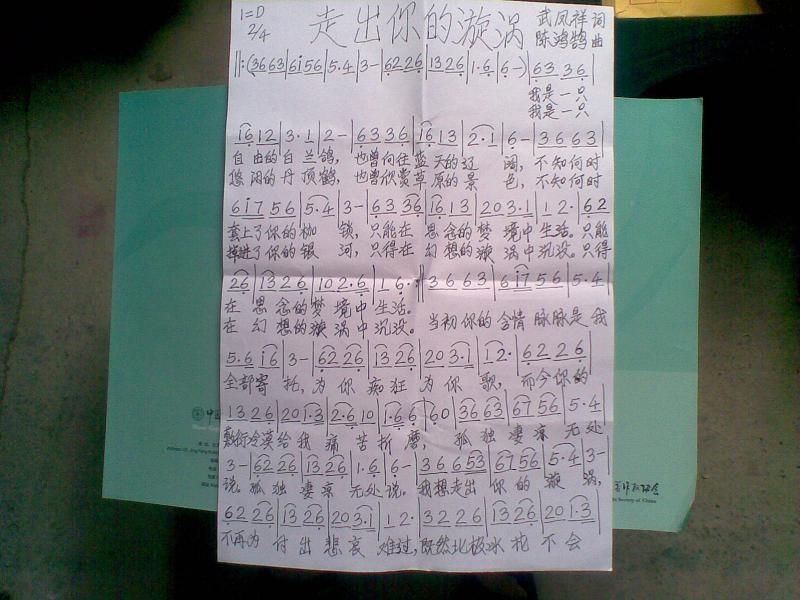 1=D
2/4
走出你的漩涡
武凤祥 词
陈鸿鹄 曲
‖:(3663|6i56|5·4|3-|6226|1326|1·6|6-)|63 36|
我是一只
我是一只
1612|3·1|2-|6336|1613|2·1|6-|3663|
自由的白兰鸽，也曾向往蓝天的辽阔，不知何时
悠闲的丹顶鹤，也曾欣赏草原的景色，不知何时
6i756|5·4|3-|6336|1613|203·1|12·|62
套上了你的枷锁，只能在思念的梦境中生活。只能
掉进了你的银河，只得在幻想的漩涡中沉没。只得
26|1326|102·6|16·:‖3663|6i756|5·4|
在思念的梦境中生活。
在幻想的漩涡中沉没。当初你的含情脉脉是我
5·6i6|3-|6226|1326|203·1|12·|6226|
全部寄托，为你痴狂为你歌，而今你的
1326|201·3|2·610|1·66|60|3663|6756|5·4|
敷衍冷漠给我痛苦折磨，孤独凄凉无处
3-|6226|1326|1·6|6-|36653|6756|5·4|3-|
说。孤独凄凉无处说。我想走出你的漩涡，
6226|1326|203·1|12·|3226|1326|201·3|
不再为付出悲哀难过，既然北极冰花不会